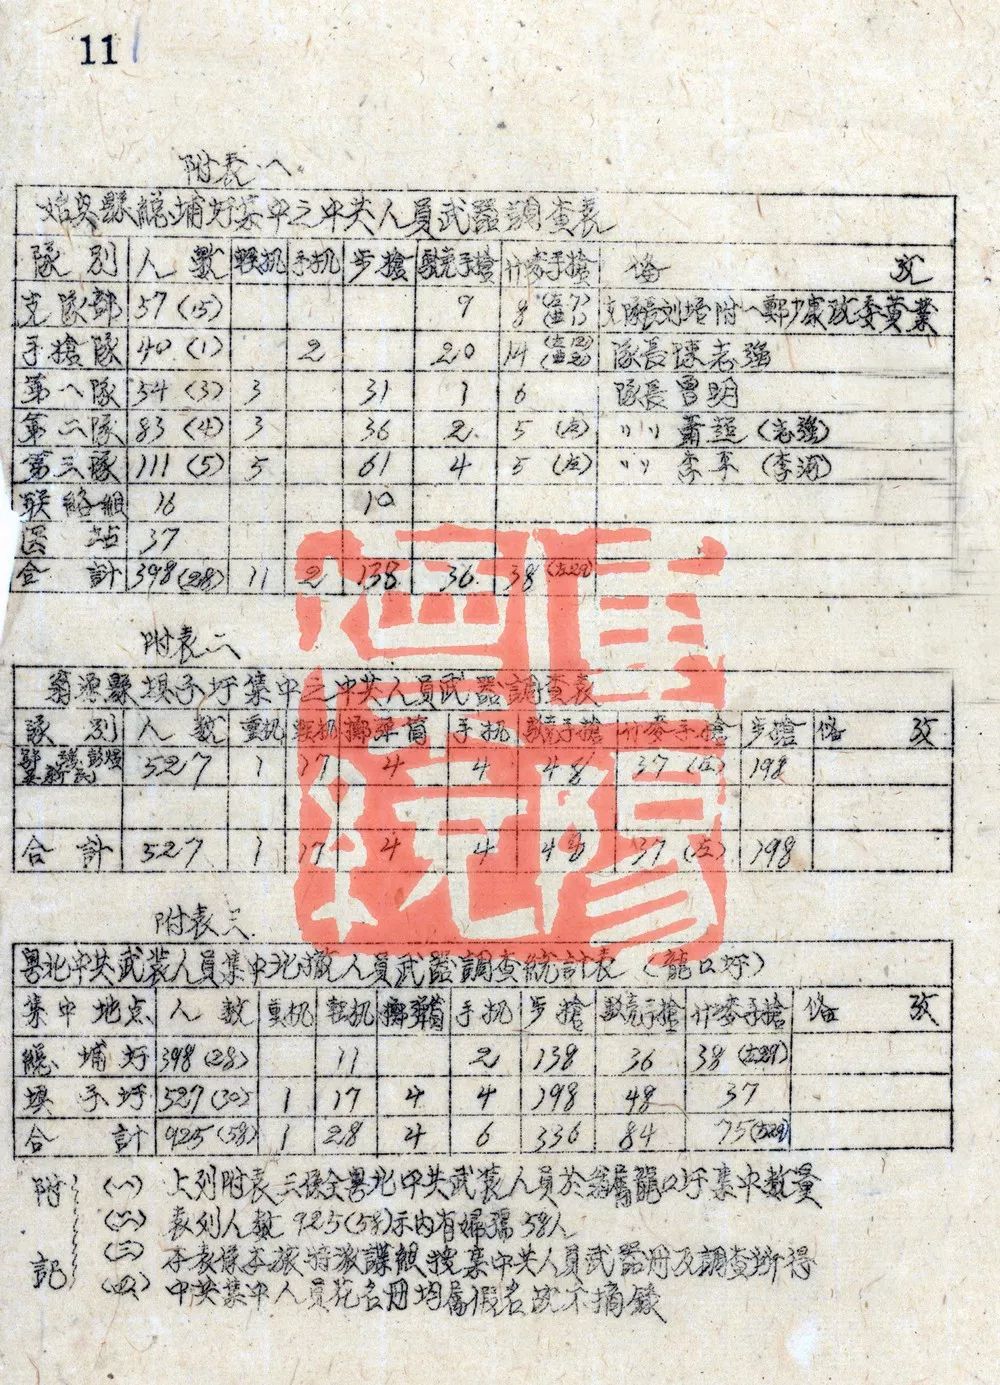 11
附表一
始兴縣總埔圩集中之中共人員武器調查表
隊別 人數 輕机 手机 步槍 駁壳手槍 什麥手槍 備攷
支隊部 57(15) 9 8 支隊長刘培附 鄭少康政委黄業
手槍隊 40(1) 2 20 14 隊長陳志強
第一隊 54(3) 3 31 1 6 隊長曾明
第二隊 83(4) 3 36 2 5(左) 〃〃 蕭超(志強)
第三隊 111(5) 5 61 4 5(左) 〃〃 李平
联絡組 16 10
医站 37
合計 398(28) 11 2 138 36 38(左29)
附表二
翁源縣埧子圩集中之中共人員武器調查表
隊別 人數 重机 輕机 擲弹筒 手机 駁壳手槍 什麥手槍 步槍 備攷
527 1 17 4 4 48 37(左) 198
合計 527 1 17 4 4 48 37(左) 198
附表三
粤北中共武装人員集中北撤人員武器調查統計表(龍口圩)
集中地点 人數 重机 輕机 擲弹筒 手机 步槍 駁壳手槍 什麥手槍 備攷
總埔圩 398(28) 11 2 138 36 38(左29)
埧子圩 527(30) 1 17 4 4 198 48 37
合計 925(58) 1 28 4 6 336 84 75(左29)
附記
(一) 上列附表三係全粤北中共武装人員於翁屬龍口圩集中数量
(二) 表列人数925(58)示内有婦孺58人
(三) 本表係本旅特派諜組搜集中共人員武器册及調查所得
(四) 中共集中人員花名册均屬假名故不摘錄